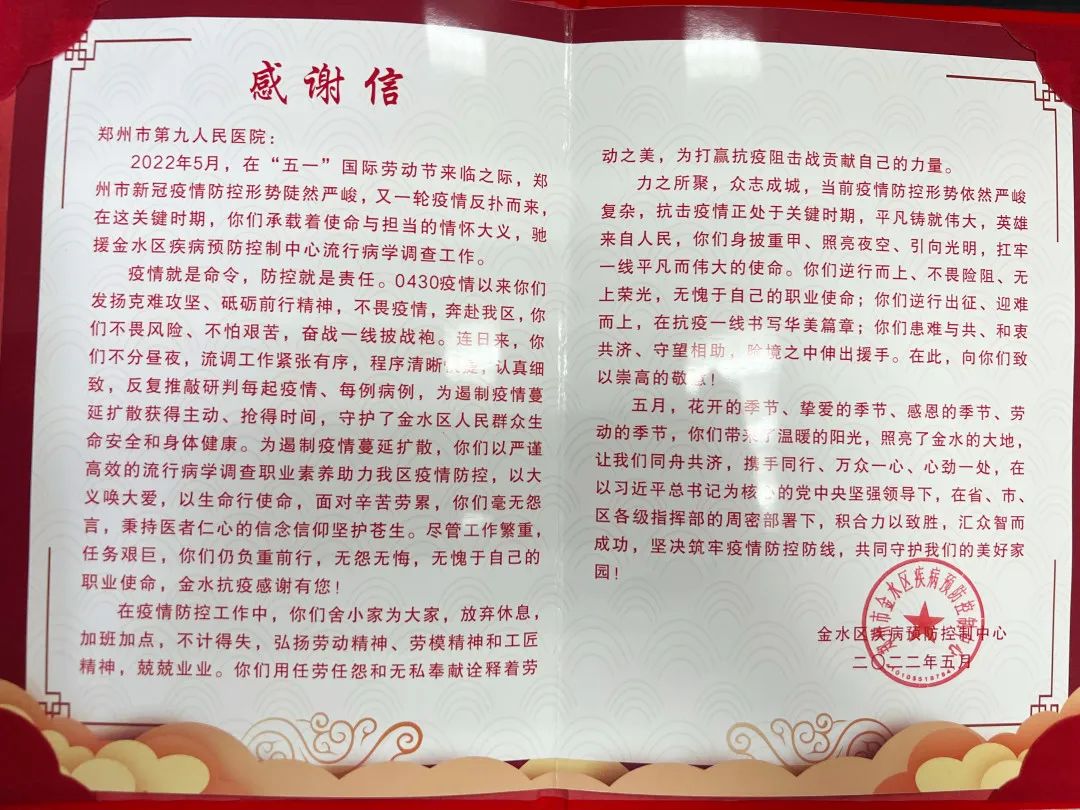 感谢信
郑州市第九人民医院：
2022年5月，在“五一”国际劳动节来临之际，郑
州市新冠疫情防控形势陡然严峻，又一轮疫情反扑而来，
在这关键时期，你们承载着使命与担当的情怀大义，驰
援金水区疾病预防控制中心流行病学调查工作。
疫情就是命令，防控就是责任。0430疫情以来你们
发扬克难攻坚、砥砺前行精神，不畏疫情，奔赴我区，你
们不畏风险、不怕艰苦，奋战一线披战袍。连日来，你
们不分昼夜，流调工作紧张有序，程序清晰快捷，认真细
致，反复推敲研判每起疫情、每例病例，为遏制疫情蔓
延扩散获得主动、抢得时间，守护了金水区人民群众生
命安全和身体健康。为遏制疫情蔓延扩散，你们以严谨
高效的流行病学调查职业素养助力我区疫情防控，以大
义唤大爱，以生命行使命，面对辛苦劳累，你们毫无怨
言，秉持医者仁心的信念信仰坚护苍生。尽管工作繁重，
任务艰巨，你们仍负重前行，无怨无悔，无愧于自己的
职业使命，金水抗疫感谢有您！
在疫情防控工作中，你们舍小家为大家，放弃休息，
加班加点，不计得失，弘扬劳动精神、劳模精神和工匠
精神，兢兢业业。你们用任劳任怨和无私奉献诠释着劳
动之美，为打赢抗疫阻击战贡献自己的力量。
力之所聚，众志成城，当前疫情防控形势依然严峻
复杂，抗击疫情正处于关键时期，平凡铸就伟大，英雄
来自人民，你们身披重甲、照亮夜空、引向光明，扛牢
一线平凡而伟大的使命。你们逆行而上、不畏险阻、无
上荣光，无愧于自己的职业使命；你们逆行出征、迎难
而上，在抗疫一线书写华美篇章；你们患难与共、和衷
共济、守望相助，险境之中伸出援手。在此，向你们致
以崇高的敬意！
五月，花开的季节、挚爱的季节、感恩的季节、劳
动的季节，你们带来了温暖的阳光，照亮了金水的大地，
让我们同舟共济，携手同行、万众一心、心劲一处，在
以习近平总书记为核心的党中央坚强领导下，在省、市、
区各级指挥部的周密部署下，积合力以致胜，汇众智而
成功，坚决筑牢疫情防控防线，共同守护我们的美好家
园！
金水区疾病预防控制中心
二〇二二年五月
郑州市金水区疾病预防控制中心